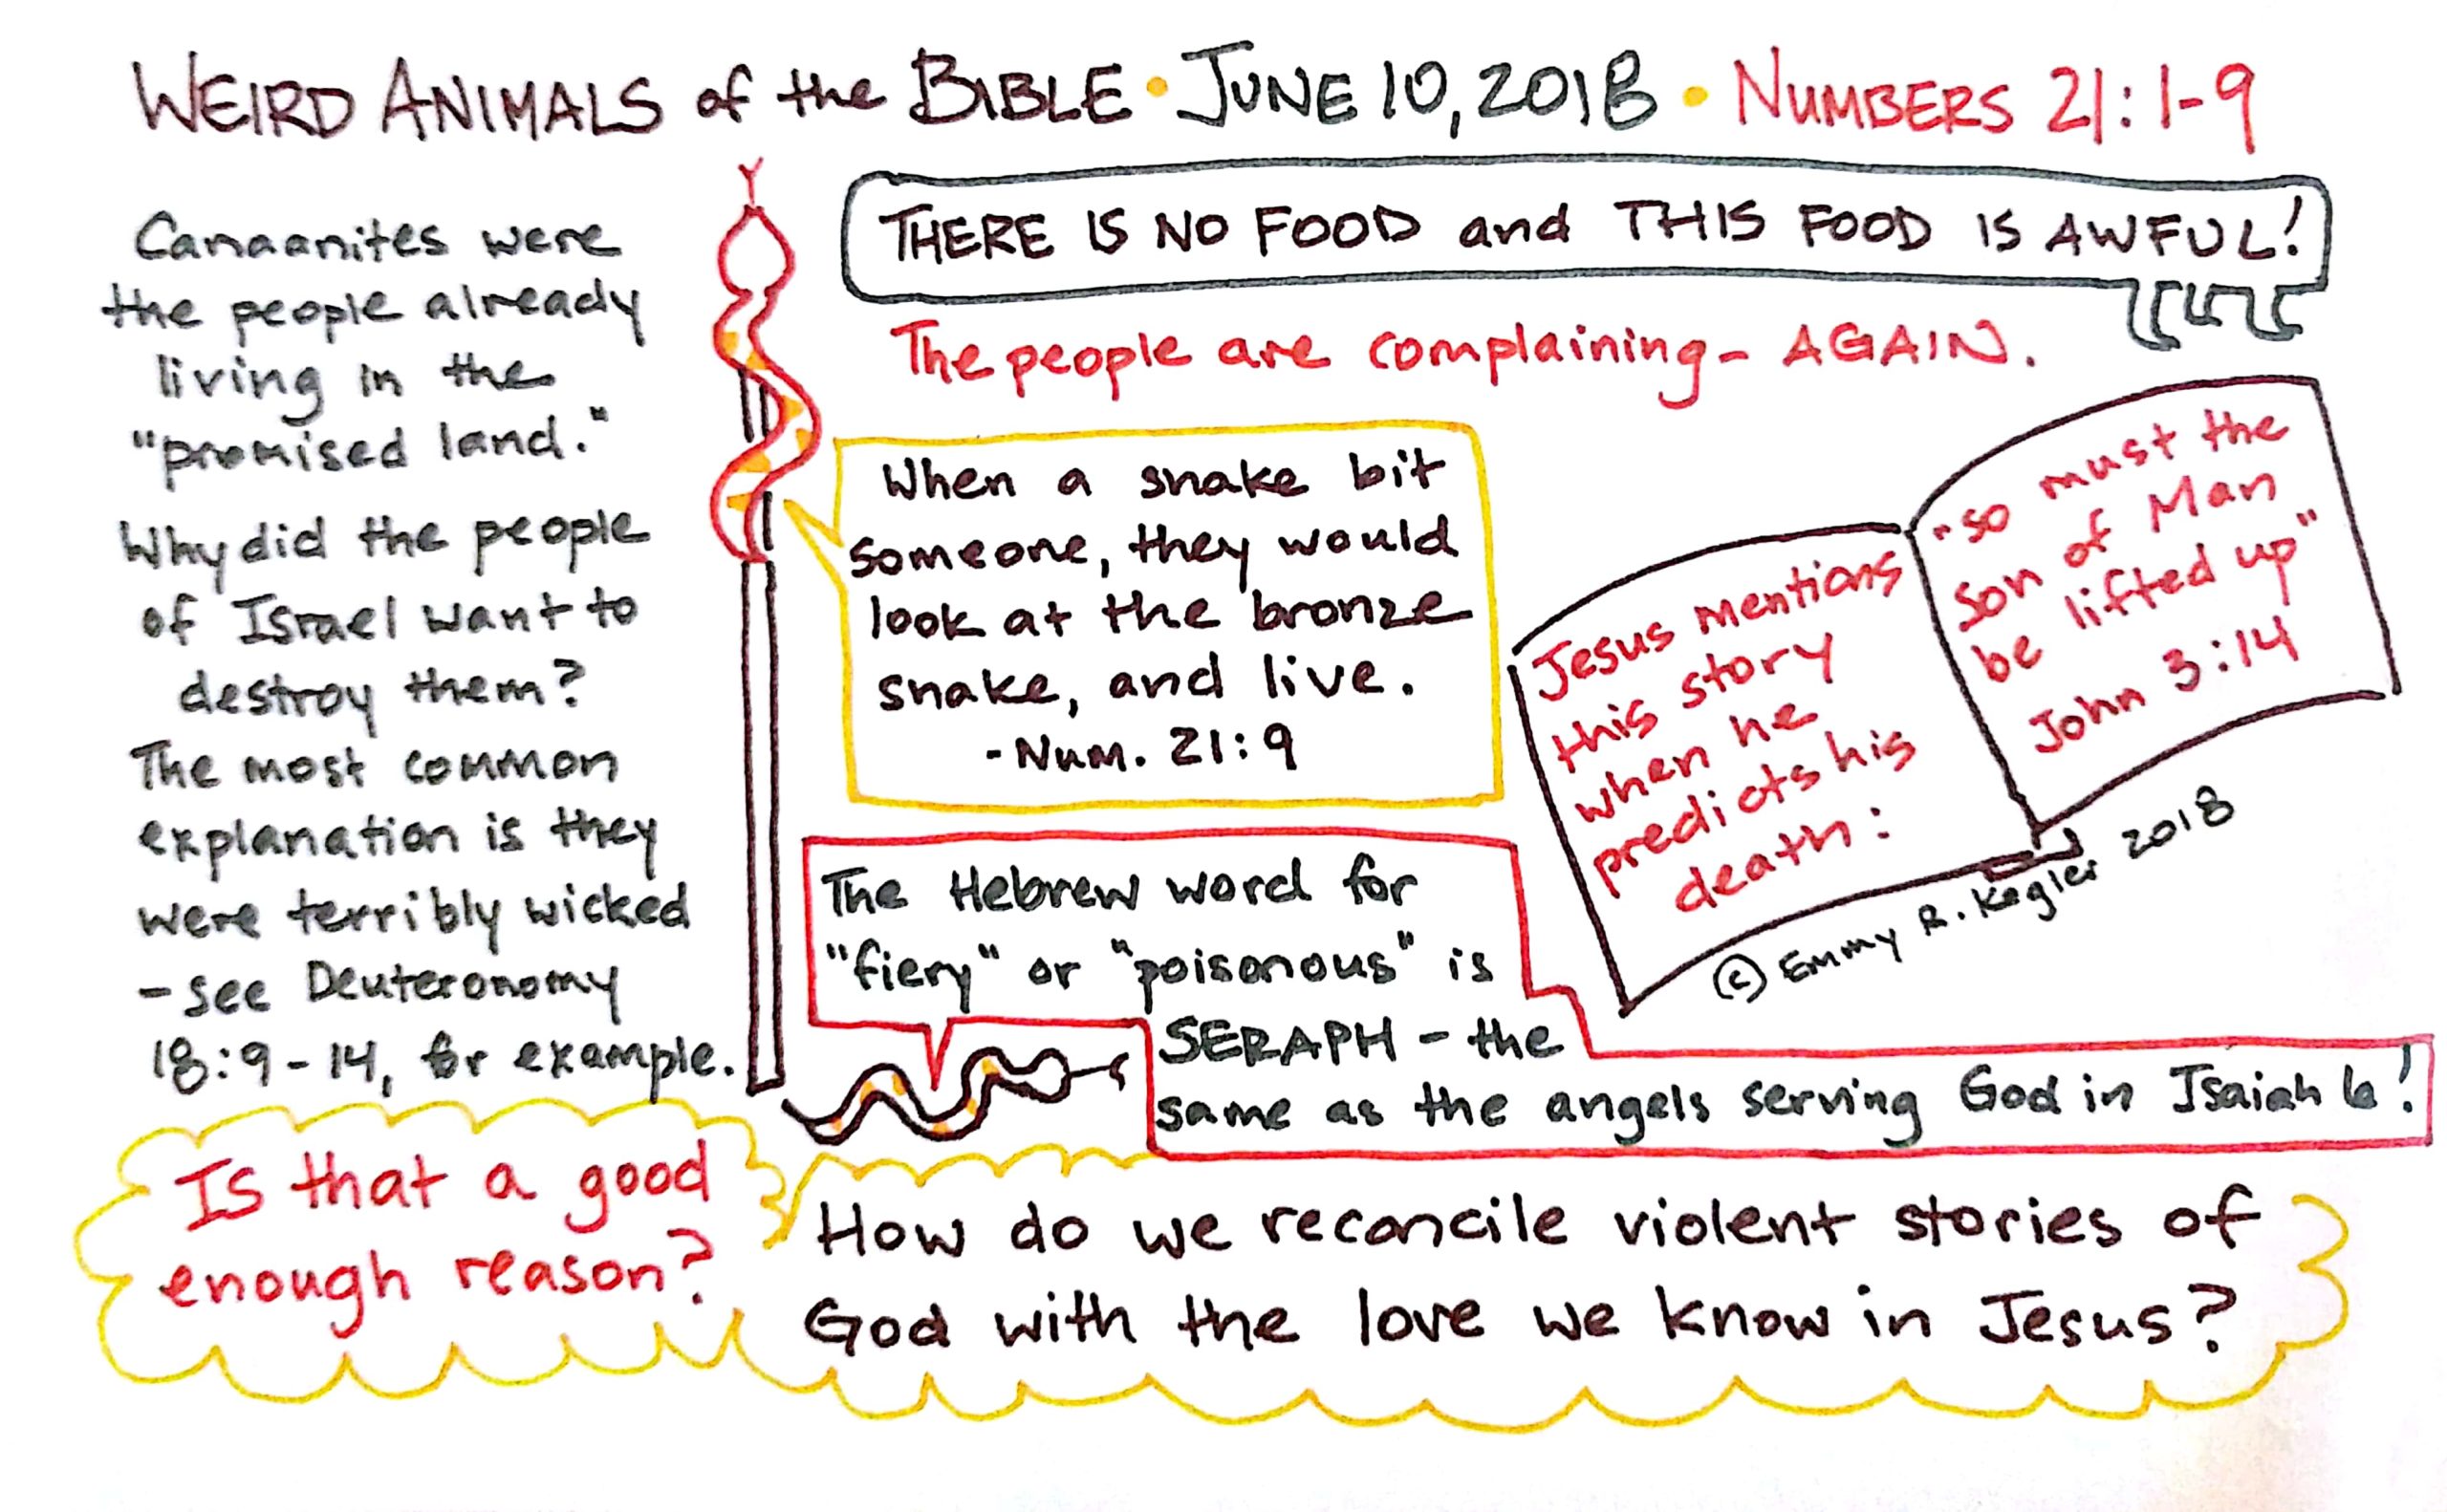 WEIRD ANIMALS of the BIBLE • JUNE 10, 2018 • NUMBERS 21:1-9
Canaanites were
the people already
living in the
"promised land."
Why did the people
of Israel want to
destroy them?
The most common
explanation is they
were terribly wicked
- see Deuteronomy
18:9-14, for example.
Is that a good
enough reason?
THERE IS NO FOOD and THIS FOOD IS AWFUL!
The people are complaining - AGAIN.
When a snake bit
someone, they would
look at the bronze
snake, and live.
- Num. 21:9
Jesus mentions
this story
when he
predicts his
death:
"so must the
Son of Man
be lifted up"
John 3:14
© Emmy R. Kegler 2018
The Hebrew word for
"fiery" or "poisonous" is
SERAPH - the
same as the angels serving God in Isaiah 6!
How do we reconcile violent stories of
God with the love we know in Jesus?